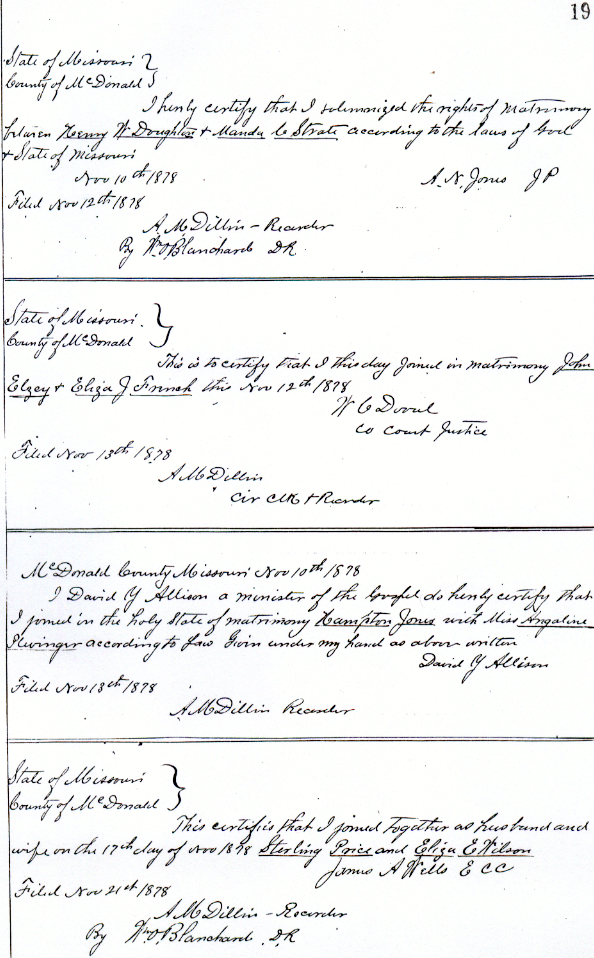 19
State of Missouri }
County of McDonald }
I herily certify that I solemnized the rights of Matrimony
between Henry W Doughtss + Manda C Strate according to the laws of God
+ State of Missouri
Nov 10th 1878 A. N. Jones J P
Filed Nov 12th 1878
A M Dillin - Recorder
By Wm O Blanchard DR
State of Missouri. }
County of McDonald }
This is to certify that I this day Joined in matrimony John
Elzey + Eliza J French this Nov 12th 1878
W C Doval
Co Court Justice
Filed Nov 13th 1878
A M Dillin
Cir Clk + Recorder
McDonald County Missouri Nov 10th 1878
I David Y Allison a minister of the Gospel do herily certify that
I joined in the holy State of matrimony Hampton Jones with Miss Angaline
according to Law Givin under my hand as above written
David Y Allison
Filed Nov 18th 1878
A M Dillin Recorder
State of Missouri }
County of McDonald }
This certifies that I joined together as husband and
wife on the 17th day of Nov 1878 Sterling Price and Eliza E Wilson
James A Wells E CC
Filed Nov 21st 1878
A M Dillin - Recorder
By Wm O Blanchard. DR